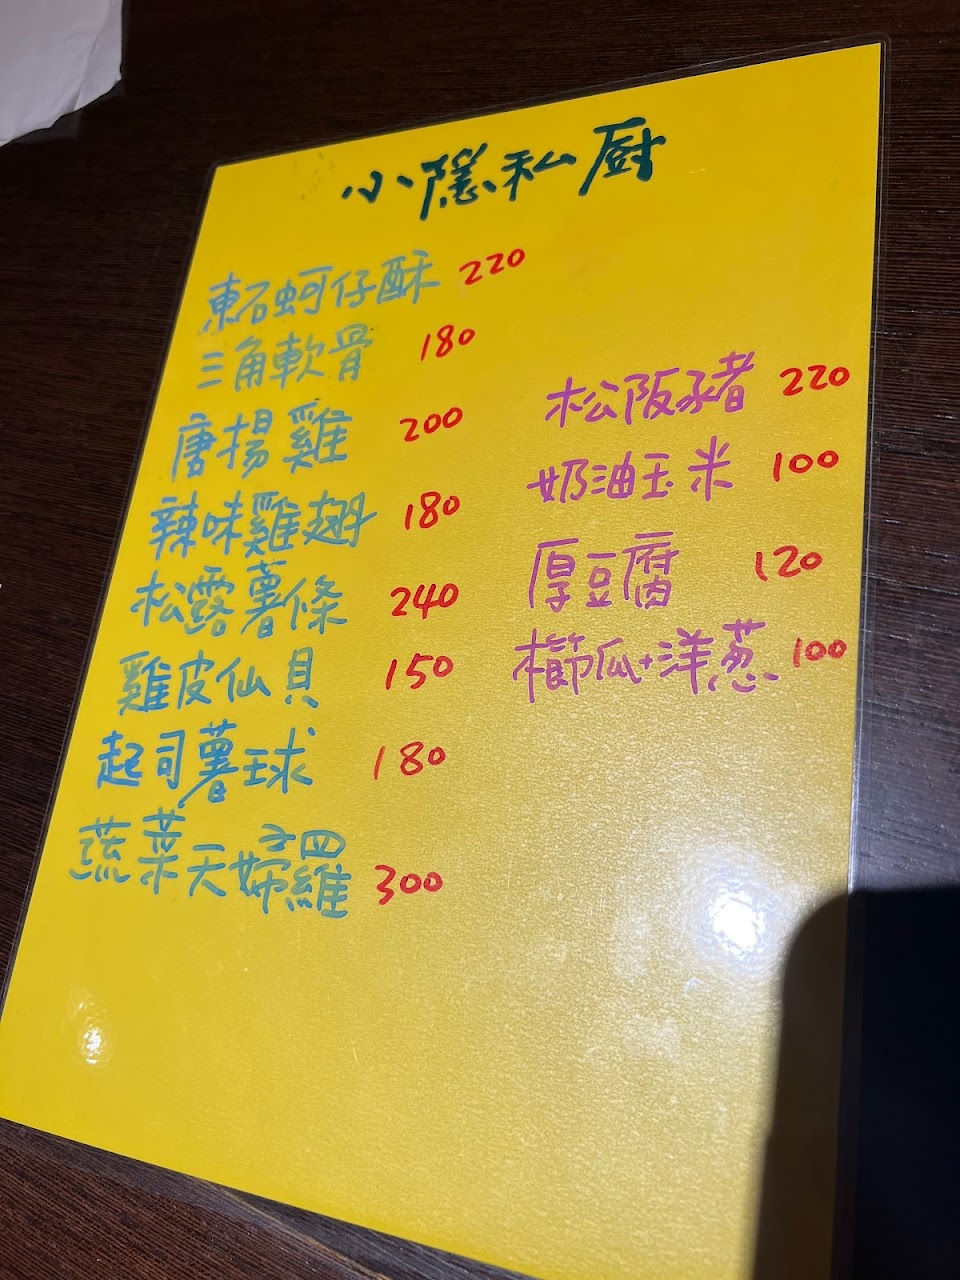 小隱私厨
東石蚵仔酥 220
三角軟骨 180
唐揚雞 200
辣味雞翅 180
松露薯條 240
雞皮仙貝 150
起司薯球 180
蔬菜天婦羅 300
松阪豬 220
奶油玉米 100
厚豆腐 120
櫛瓜+洋蔥 100